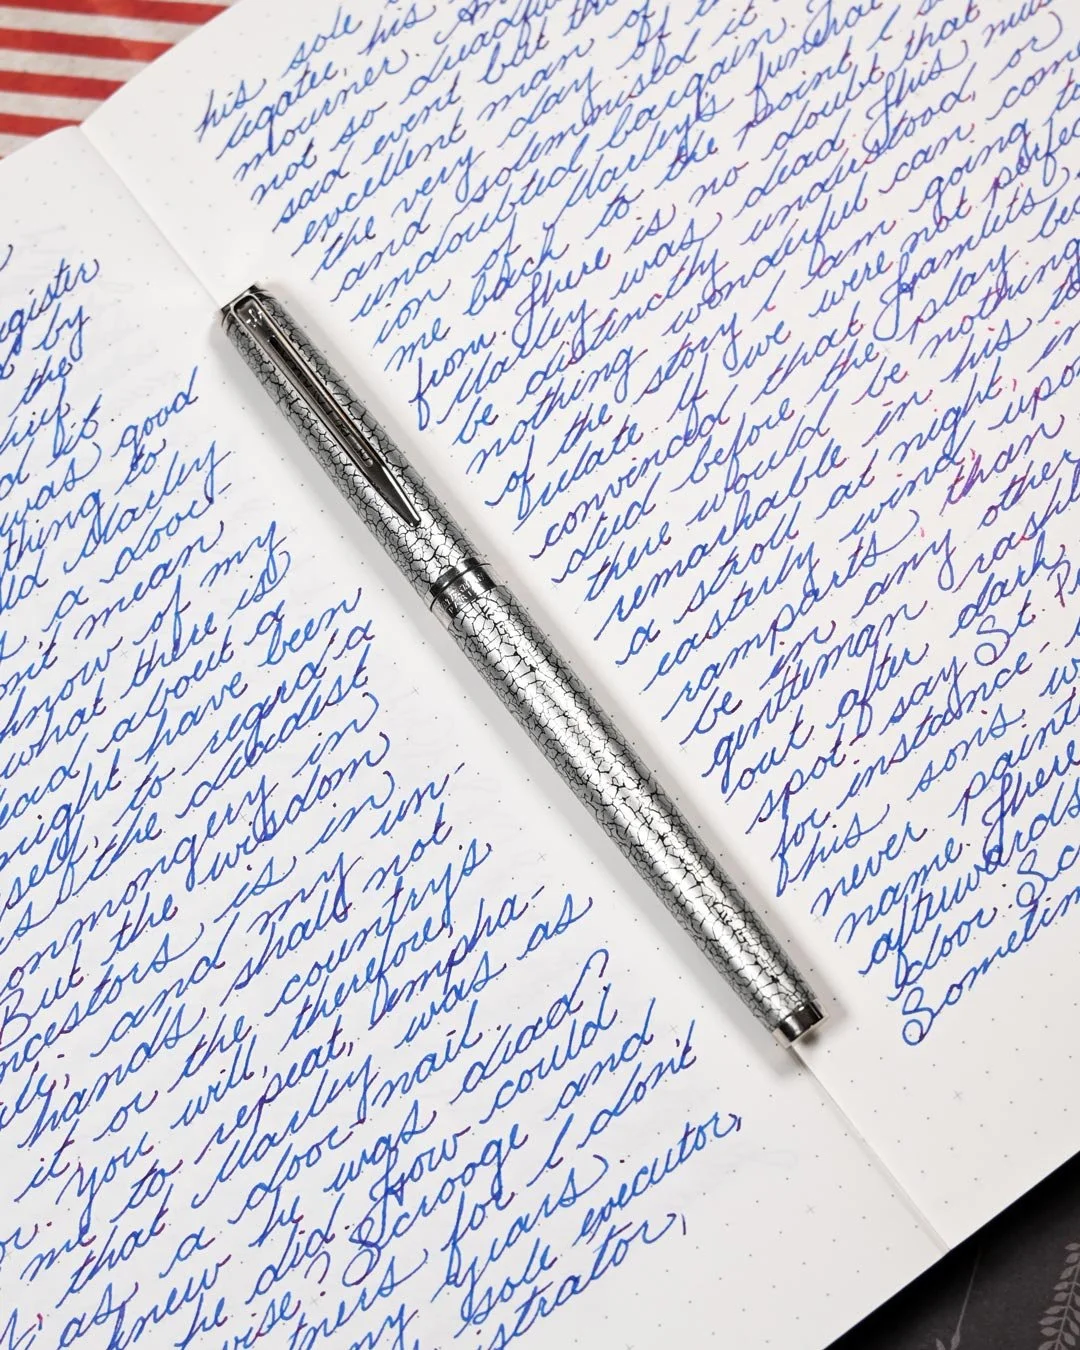 register
by
the
hief
d it
was good
thing to
ld Marley
a door-
on't mean
know of my
what there is
ead about a
might have been
self, to regard a
the deadest
onmongery in
But the wisdom
ncestors is in
ile; and my un-
hands shall not
it or the country's
you will, therefore,
me to repeat, empha-
that Marley was as
as a door-nail.
knew he was dead?
he did. How could
wise? Scrooge and
tners for I don't
ny years
sole executor,
strator,
his sole
his
mourner. And
not so dreadfu
sad event but tha
excellent man of
the very day of th
and solemnised it
undoubted bargain. The
ion of Marley's funeral
me back to the point I s
from. There is no doubt that
Marley was dead. This mus
be distinctly understood, or
nothing wonderful can com
of the story I am going to
relate. If we were not perfec
convinced that Hamlet's
died before the play be
there would be nothing
remarkable in his ta
a stroll at night, in
easterly wind, upon
ramparts, than
be in any other
gentleman rash
out after dark
spot. say St. P
for instance-
his sons w
never paint
name. There
afterwards
door: Sc
Sometim